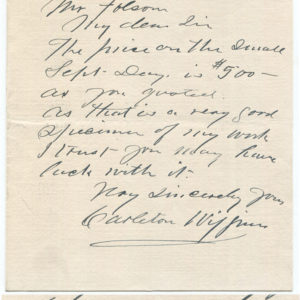 Mr Folsom
My dear Sir
The price on the Small
Sept. Day. is $500—
as you quoted.
as that is a very good
specimen of my work
I trust you may have
luck with it.
Very Sincerely yours
Carleton Wiggins